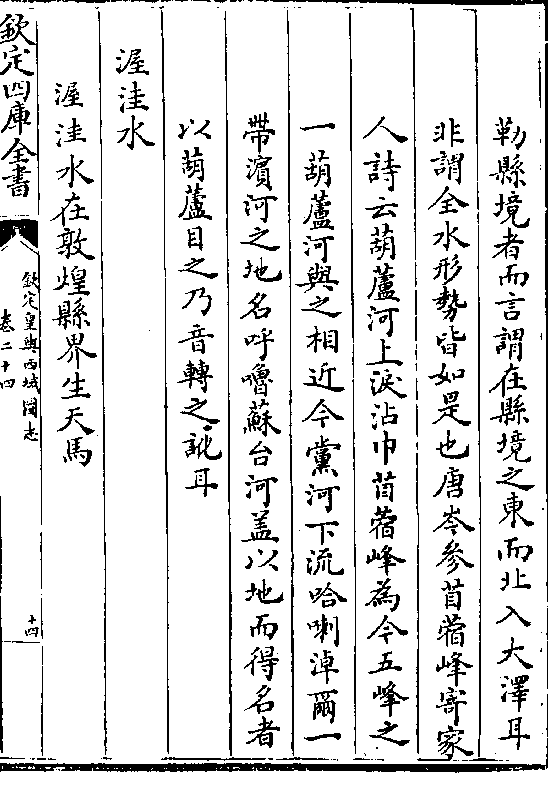 勒縣境者而言謂在縣境之東而北入大澤耳
非謂全水形勢皆如是也唐岑參苜蓿峰寄家
人詩云葫蘆河上淚沾巾苜蓿峰為今五峰之
一葫蘆河與之相近今黨河下流哈喇淖爾一
帶濵河之地名呼嚕蘇台河盖以地而得名者
以葫蘆目之乃音轉之訛耳
渥洼水
渥洼水在敦煌縣界生天馬
欽定四庫全書
欽定皇輿西域圖志
卷二十四
十四